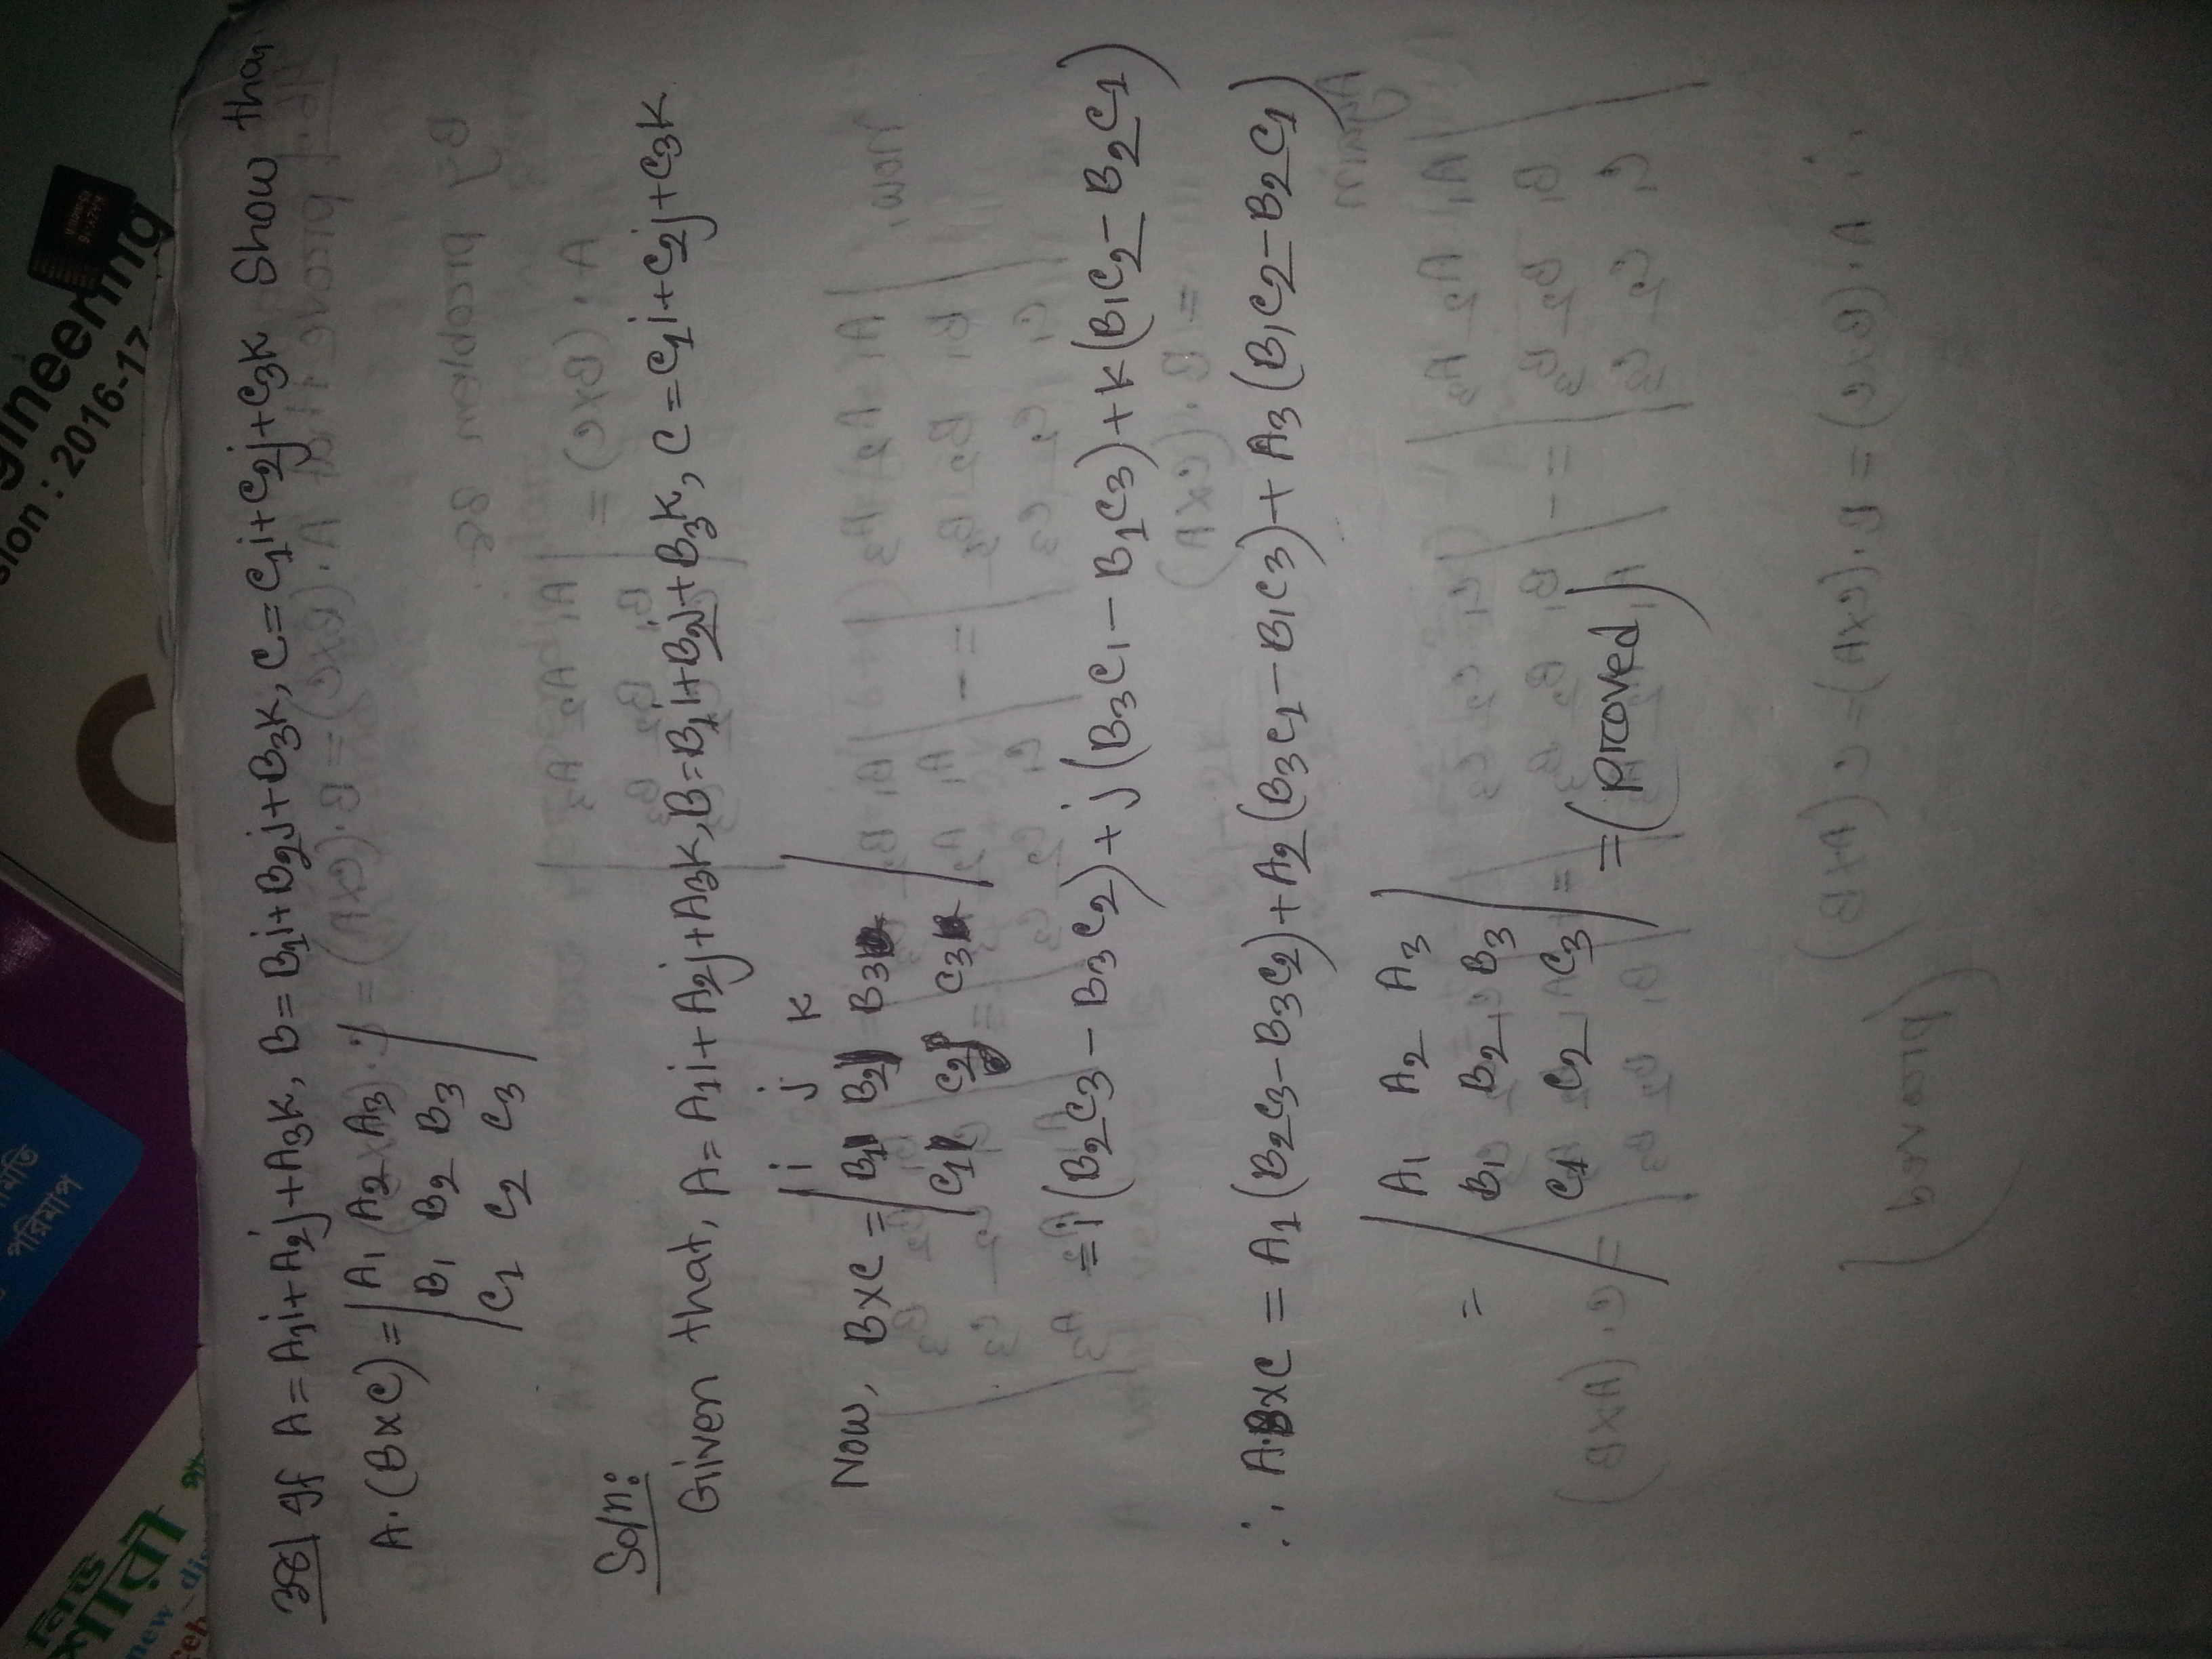 মিতি
পরিমাপ
নিউ
new_dis
gineering
sion : 2016-17
C
38| If A = A1i + A2j + A3k, B = B1i + B2j + B3k, C = C1i + C2j + C3k Show that
A·(B×C) = | A1 A2 A3 |
B1 B2 B3
C1 C2 C3
Soln:
Given that, A = A1i + A2j + A3k, B = B1i + B2j + B3k, C = C1i + C2j + C3k
i j k
Now, B×C = | B1 B2 B3 |
C1 C2 C3
= i(B2C3 − B3C2) + j(B3C1 − B1C3) + k(B1C2 − B2C1)
∴ A·B×C = A1(B2C3 − B3C2) + A2(B3C1 − B1C3) + A3(B1C2 − B2C1)
A1 A2 A3
= | B1 B2 B3 |
C1 C2 C3
= (proved)